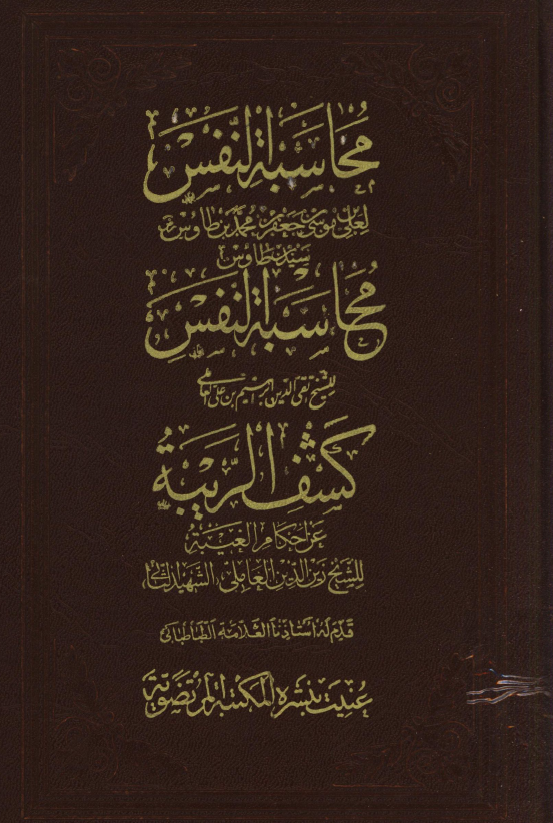 مُحَاسَبَةُ النَّفْسِ
لعلي بن موسى بن جعفر بن محمد بن طاوس
سيد بن طاوس
مُحَاسَبَةُ النَّفْسِ
للشيخ تقي الدين ابراهيم بن علي العاملي
كَشْفُ الرِّيبَةِ
عَنْ أحكام الغيبة
للشيخ زين الدين العاملي، الشهيد الثاني
قدّم له أستاذنا العلامة الطباطبائي
عُنيت بنشره المكتبة المرتضوية